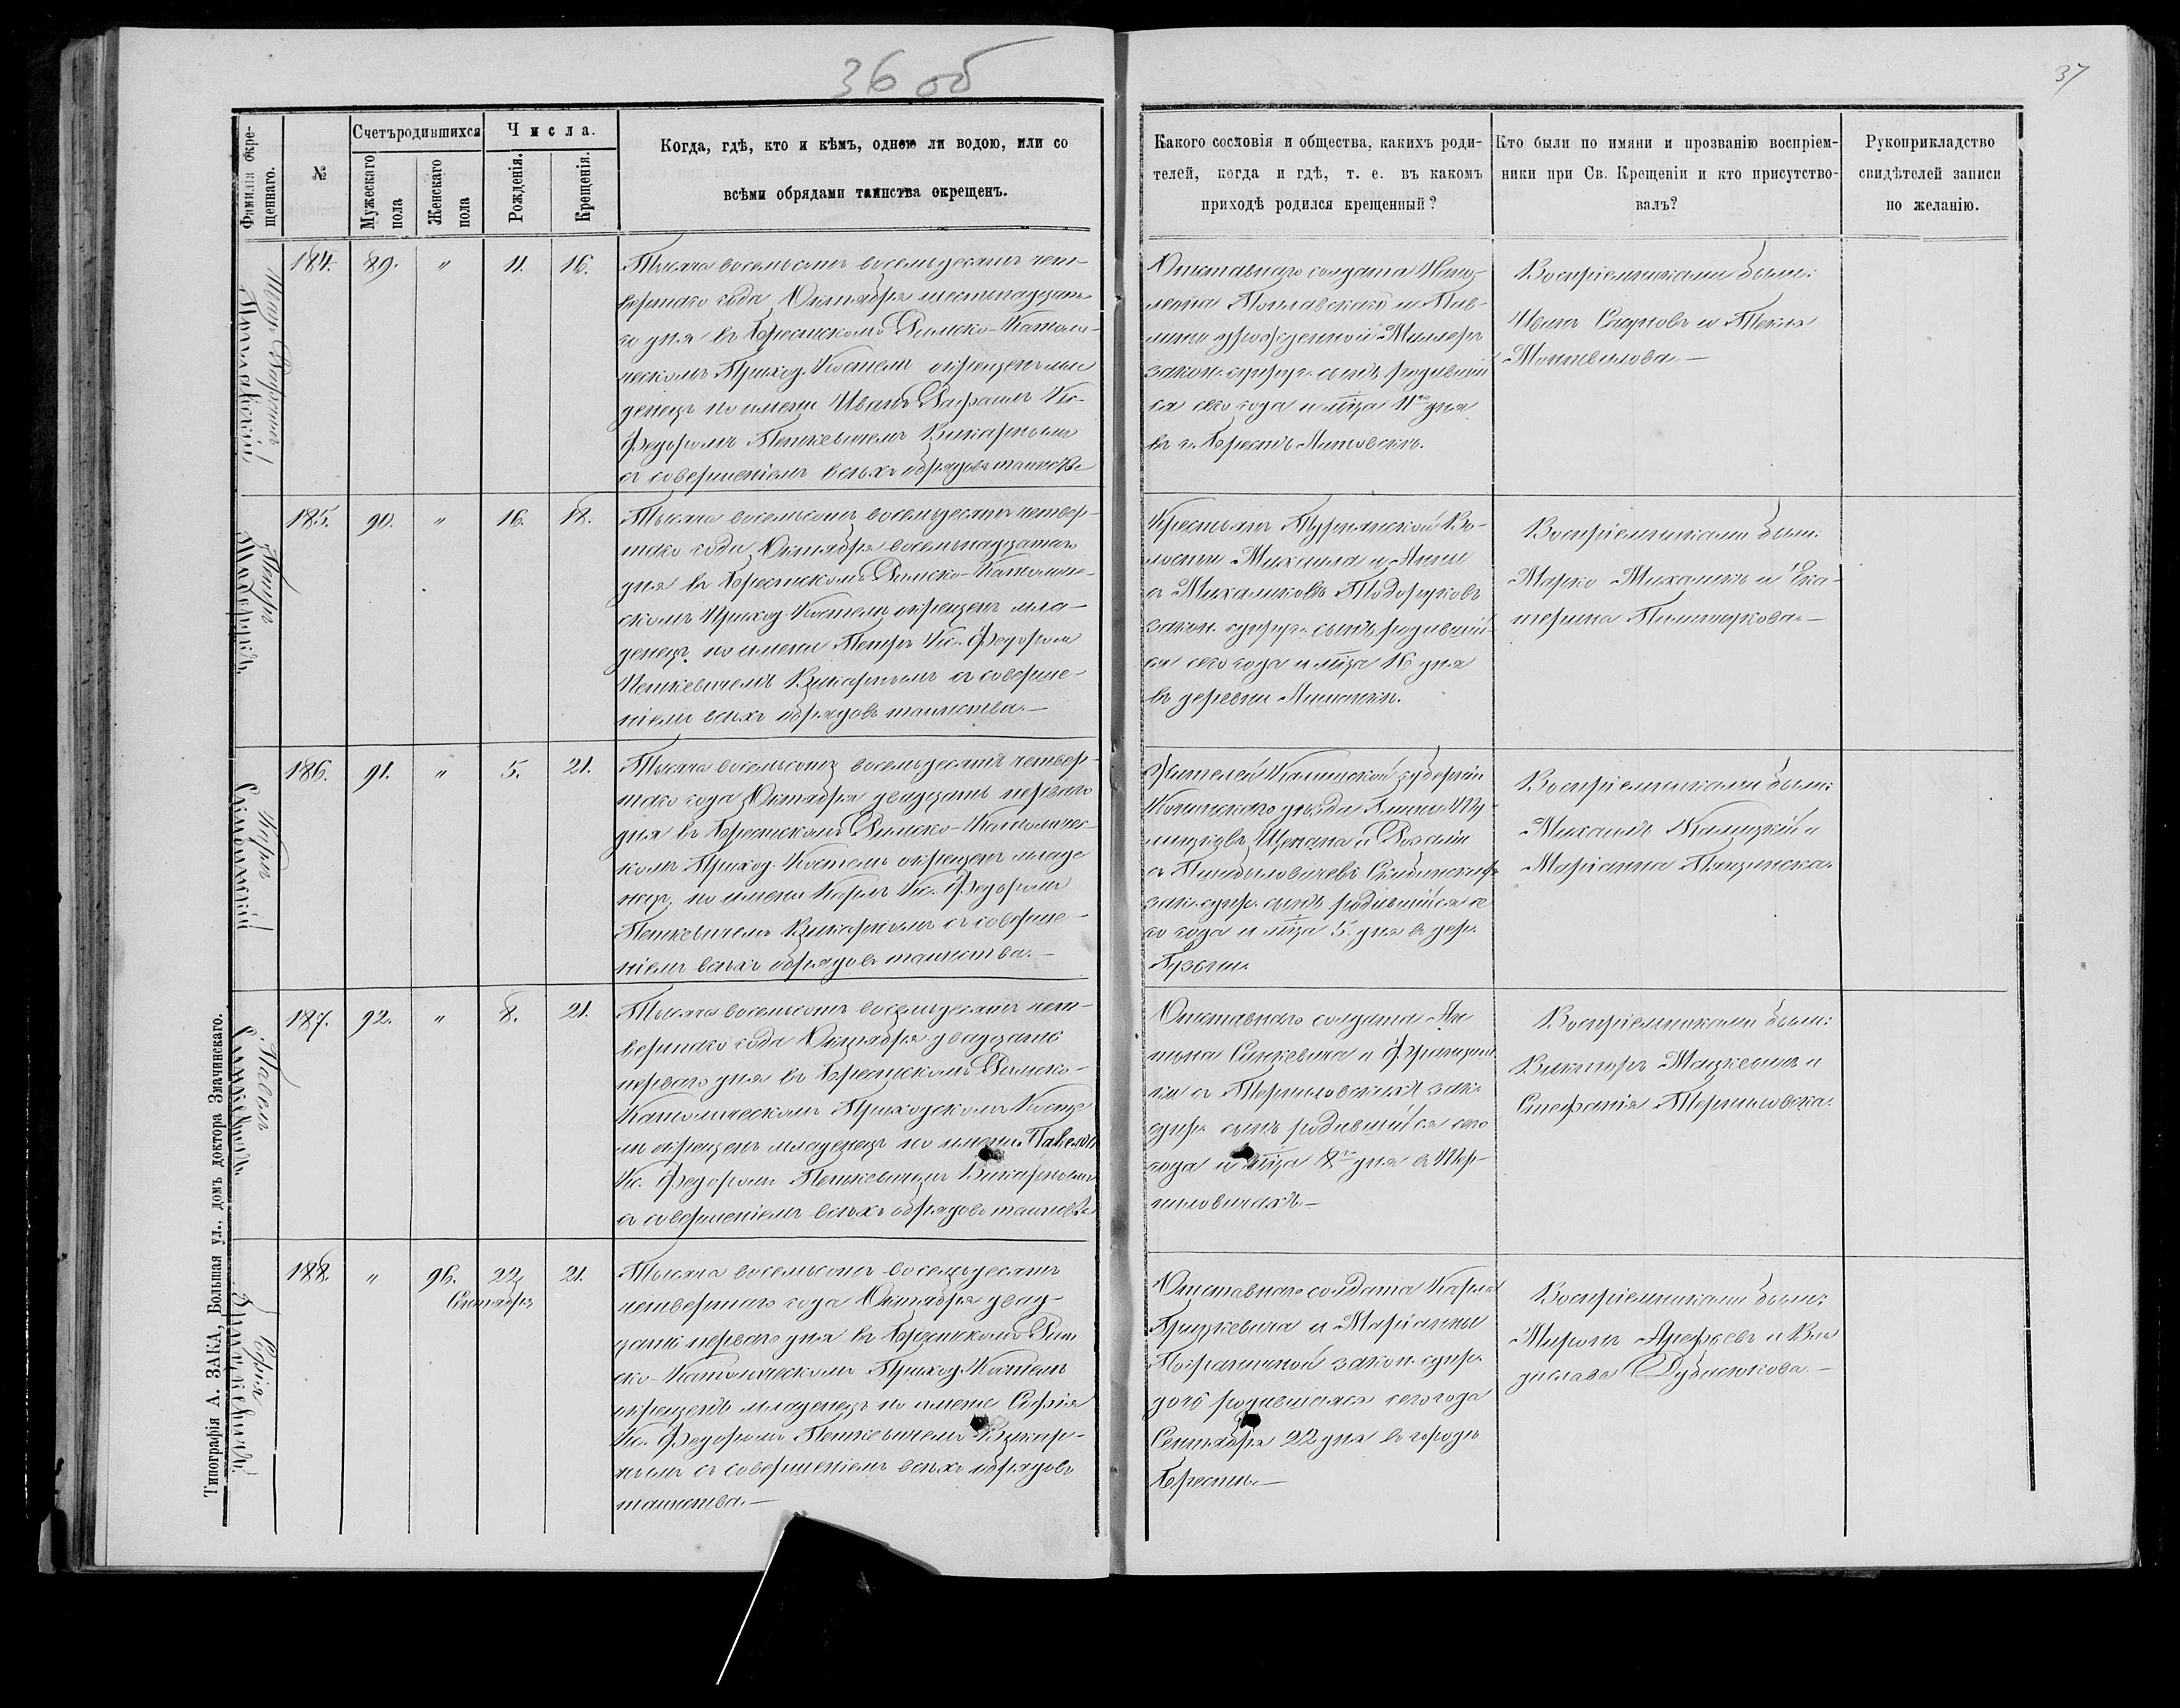 36 об
37
Фамилія окре-
щеннаго.
№
Счетъ родившихся
Мужескаго
пола
Женскаго
пола
Числа.
Рожденія.
Крещенія.
Когда, гдѣ, кто и кѣмъ, одною ли водою, или со
всѣми обрядами таинства окрещенъ.
Какого сословія и общества, какихъ роди-
телей, когда и гдѣ, т. е. въ какомъ
приходѣ родился крещенный?
Кто были по имяни и прозванію воспріем-
ники при Св. Крещеніи и кто присутство-
валъ?
Рукоприкладство
свидѣтелей записи
по желанію.
184. 89. " 11. 16.
Тысяча восемьсотъ восемьдесятъ чет-
вертаго года Октября шестнадцата-
го дня въ Брестскомъ Римско-Католи-
ческомъ Приход. Костелѣ окрещенъ мла
денецъ по имени Иванъ Рафаилъ Кс.
Федоромъ Петкевичемъ Викарнымъ
съ совершеніемъ всѣхъ обрядовъ таинства
Отставнаго солдата
Поплавскаго и Пав-
лины урожденной Миллеръ
закон. супруг. сынъ родившій
ся сего года и м-ца 11го дня
въ г. Брестѣ Литовскѣ.
Воспріемниками были:
Иванъ и Текля
Монтвилова.—
185. 90. " 16. 18.
Петръ
Тысяча восемьсотъ восемьдесятъ четвер-
таго года Октября восемьнадцатаго
дня въ Брестскомъ Римско-Католиче-
скомъ Приход. Костелѣ окрещенъ мла-
денецъ по имени Петръ Кс. Федоромъ
Петкевичемъ Викарнымъ съ соверше-
ніемъ всѣхъ обрядовъ таинства.—
Крестьянъ Во-
лости Михаила и Анны
съ Михалюковъ Тодоруковъ
закон. супруг. сынъ родившій-
ся сего года и м-ца 16 дня
въ деревни
Воспріемниками были:
Марко Михалюкъ и Ека-
терина
186. 91. " 5. 21.
Карлъ
Тысяча восемьсотъ восемьдесятъ четвер-
таго года Октября двадцать перваго
дня въ Брестскомъ Римско-Католичес-
комъ Приход. Костелѣ окрещенъ младе
нецъ по имени Карлъ Кс. Федоромъ
Петкевичемъ Викарнымъ съ соверше-
ніемъ всѣхъ обрядовъ таинства.—
Жителей Калишской губерніи
уѣзда Гмины
и Розаліи
съ
зак. супр. сынъ родившійся се
го года и м-ца 5. дня въ дер.
Воспріемниками были:
Михаилъ Калицкій и
Маріанна
187. 92. " 8. 21.
Павелъ
Тысяча восемьсотъ восемьдесятъ чет-
вертаго года Октября двадцать
перваго дня въ Брестскомъ Римско-
Католическомъ Приходскомъ Косте
лѣ окрещенъ младенецъ по имени Павелъ
Кс. Федоромъ Петкевичемъ Викарнымъ
съ совершеніемъ всѣхъ обрядовъ таинства
Отставнаго солдата Ан
тона Синкевича и Францишк
ки съ Терпиловскихъ зак.
супр. сынъ родившійся сего
года и м-ца 8го дня въ
Воспріемниками были:
Викторъ Мацкевичъ и
Стефанія Терпиловска.
188. " 96. 22 21.
Сентября
Софія
Грицкевичъ.
Тысяча восемьсотъ восемьдесятъ
четвертаго года Октября двад-
цать перваго дня въ Брестскомъ Рим
ско-Католическомъ Приход. Костелѣ
окрещенъ младенецъ по имени Софія
Кс. Федоромъ Петкевичемъ Викар-
нымъ съ совершеніемъ всѣхъ обрядовъ
таинства.—
Отставнаго солдата Карла
Грицкевича и Маріанны
закон. супр.
дочь родившаяся сего года
Сентября 22 дня въ городѣ
Брестѣ.—
Воспріемниками были:
Миронъ Арефьевъ и Вла
дислава Дубасюкова.—
Типографія А. ЗАКА, Большая ул., домъ доктора Змачинскаго.